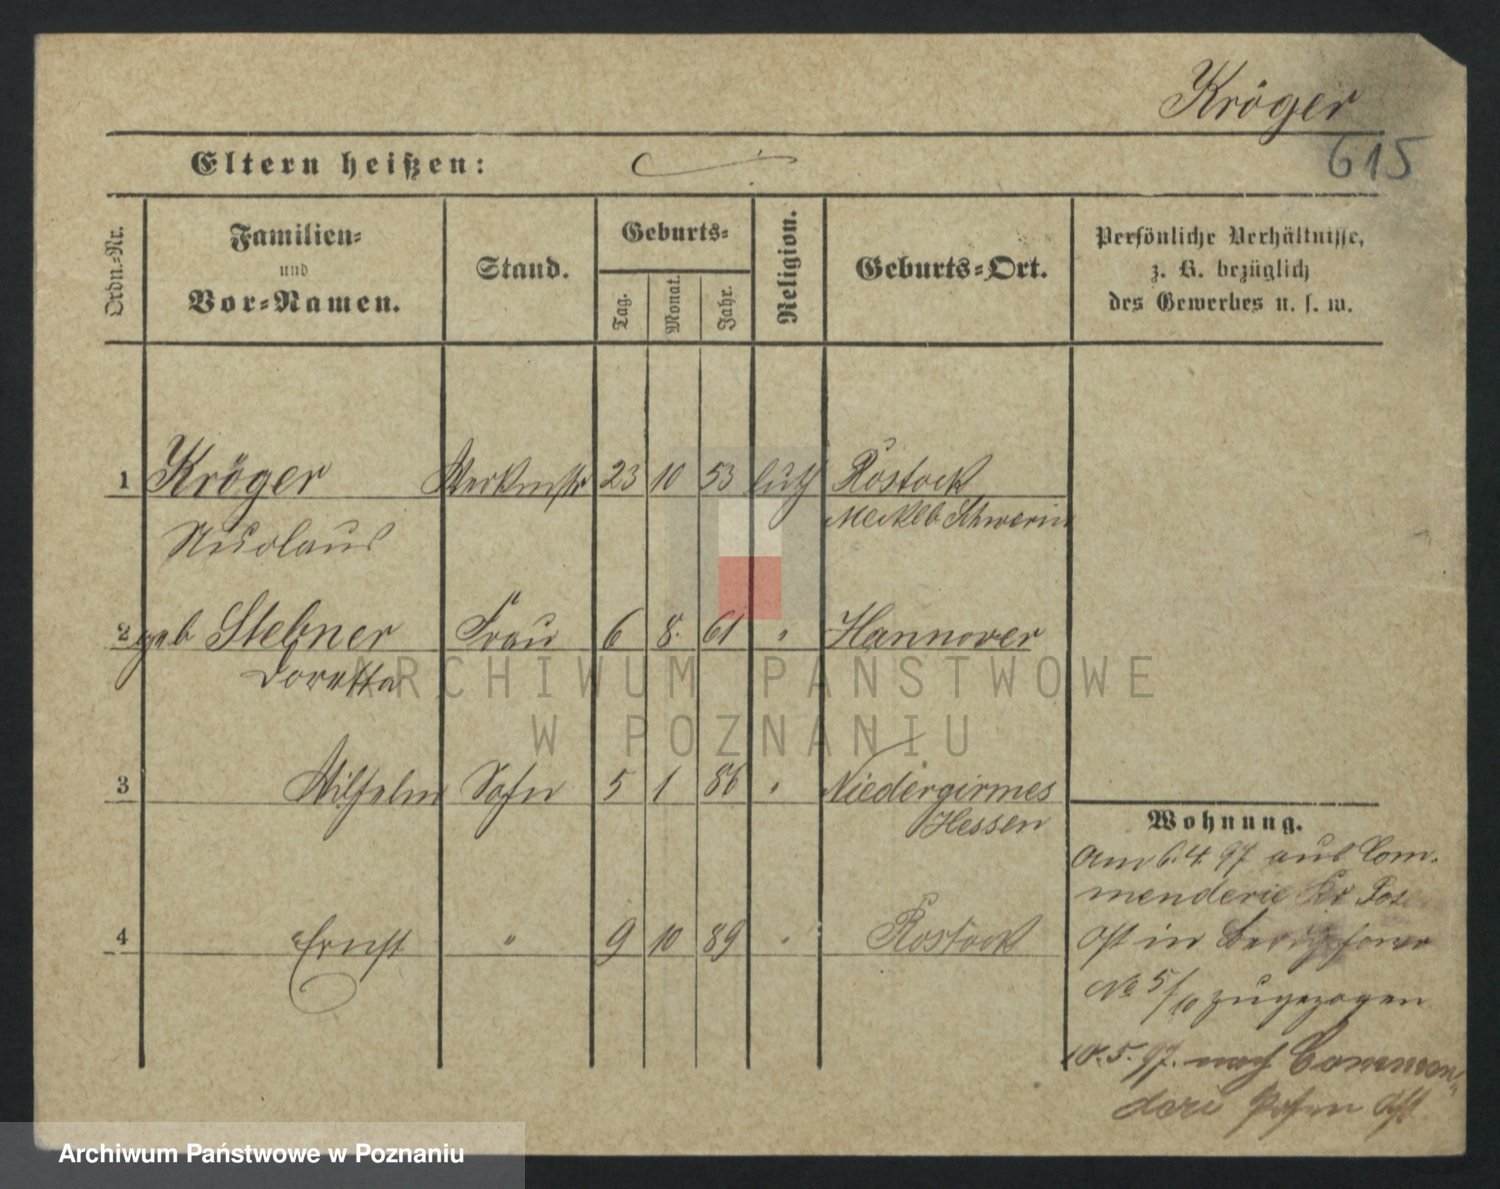 Kröger
615
Eltern heißen:
Ordn.-Nr.
Familien-
und
Vor-Namen.
Stand.
Geburts-
Tag.
Monat.
Jahr.
Religion.
Geburts-Ort.
Persönliche Verhältnisse,
z. B. bezüglich
des Gewerbes u. s. w.
1 Kröger Werkmstr 23 10 53 luth Rostock
Nicolaus Mecklb. Schwerin
2 geb Stebner Frau 6 8. 61 " Hannover
Doretta
3 Wilhelm Sohn 5 1 86 " Niedergirmes
Hessen
4 Ernst " 9 10 89 " Rostock
Wohnung.
Am 6.4.97 aus Com-
menderie Kr Pos.
Ost in
No 5/10 zugezogen
10.5.97. nach Commen-
derie Posen Ost
ARCHIWUM PAŃSTWOWE
W POZNANIU
Archiwum Państwowe w Poznaniu